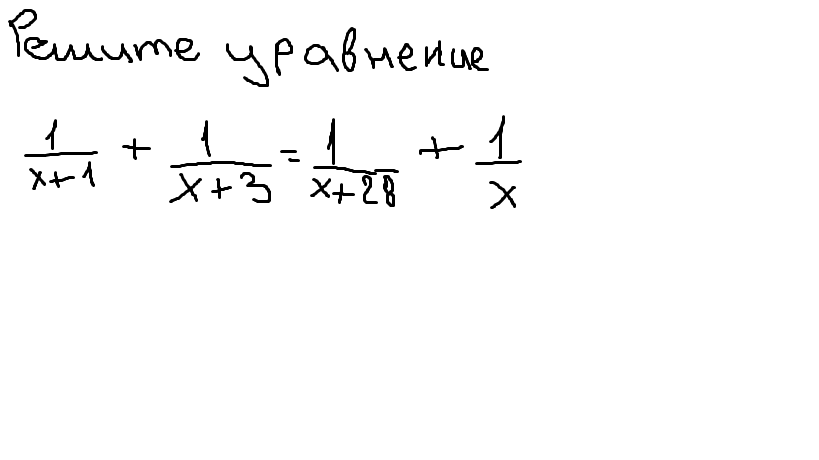 Решите уравнение
1/(x+1) + 1/(x+3) = 1/(x+28) + 1/x